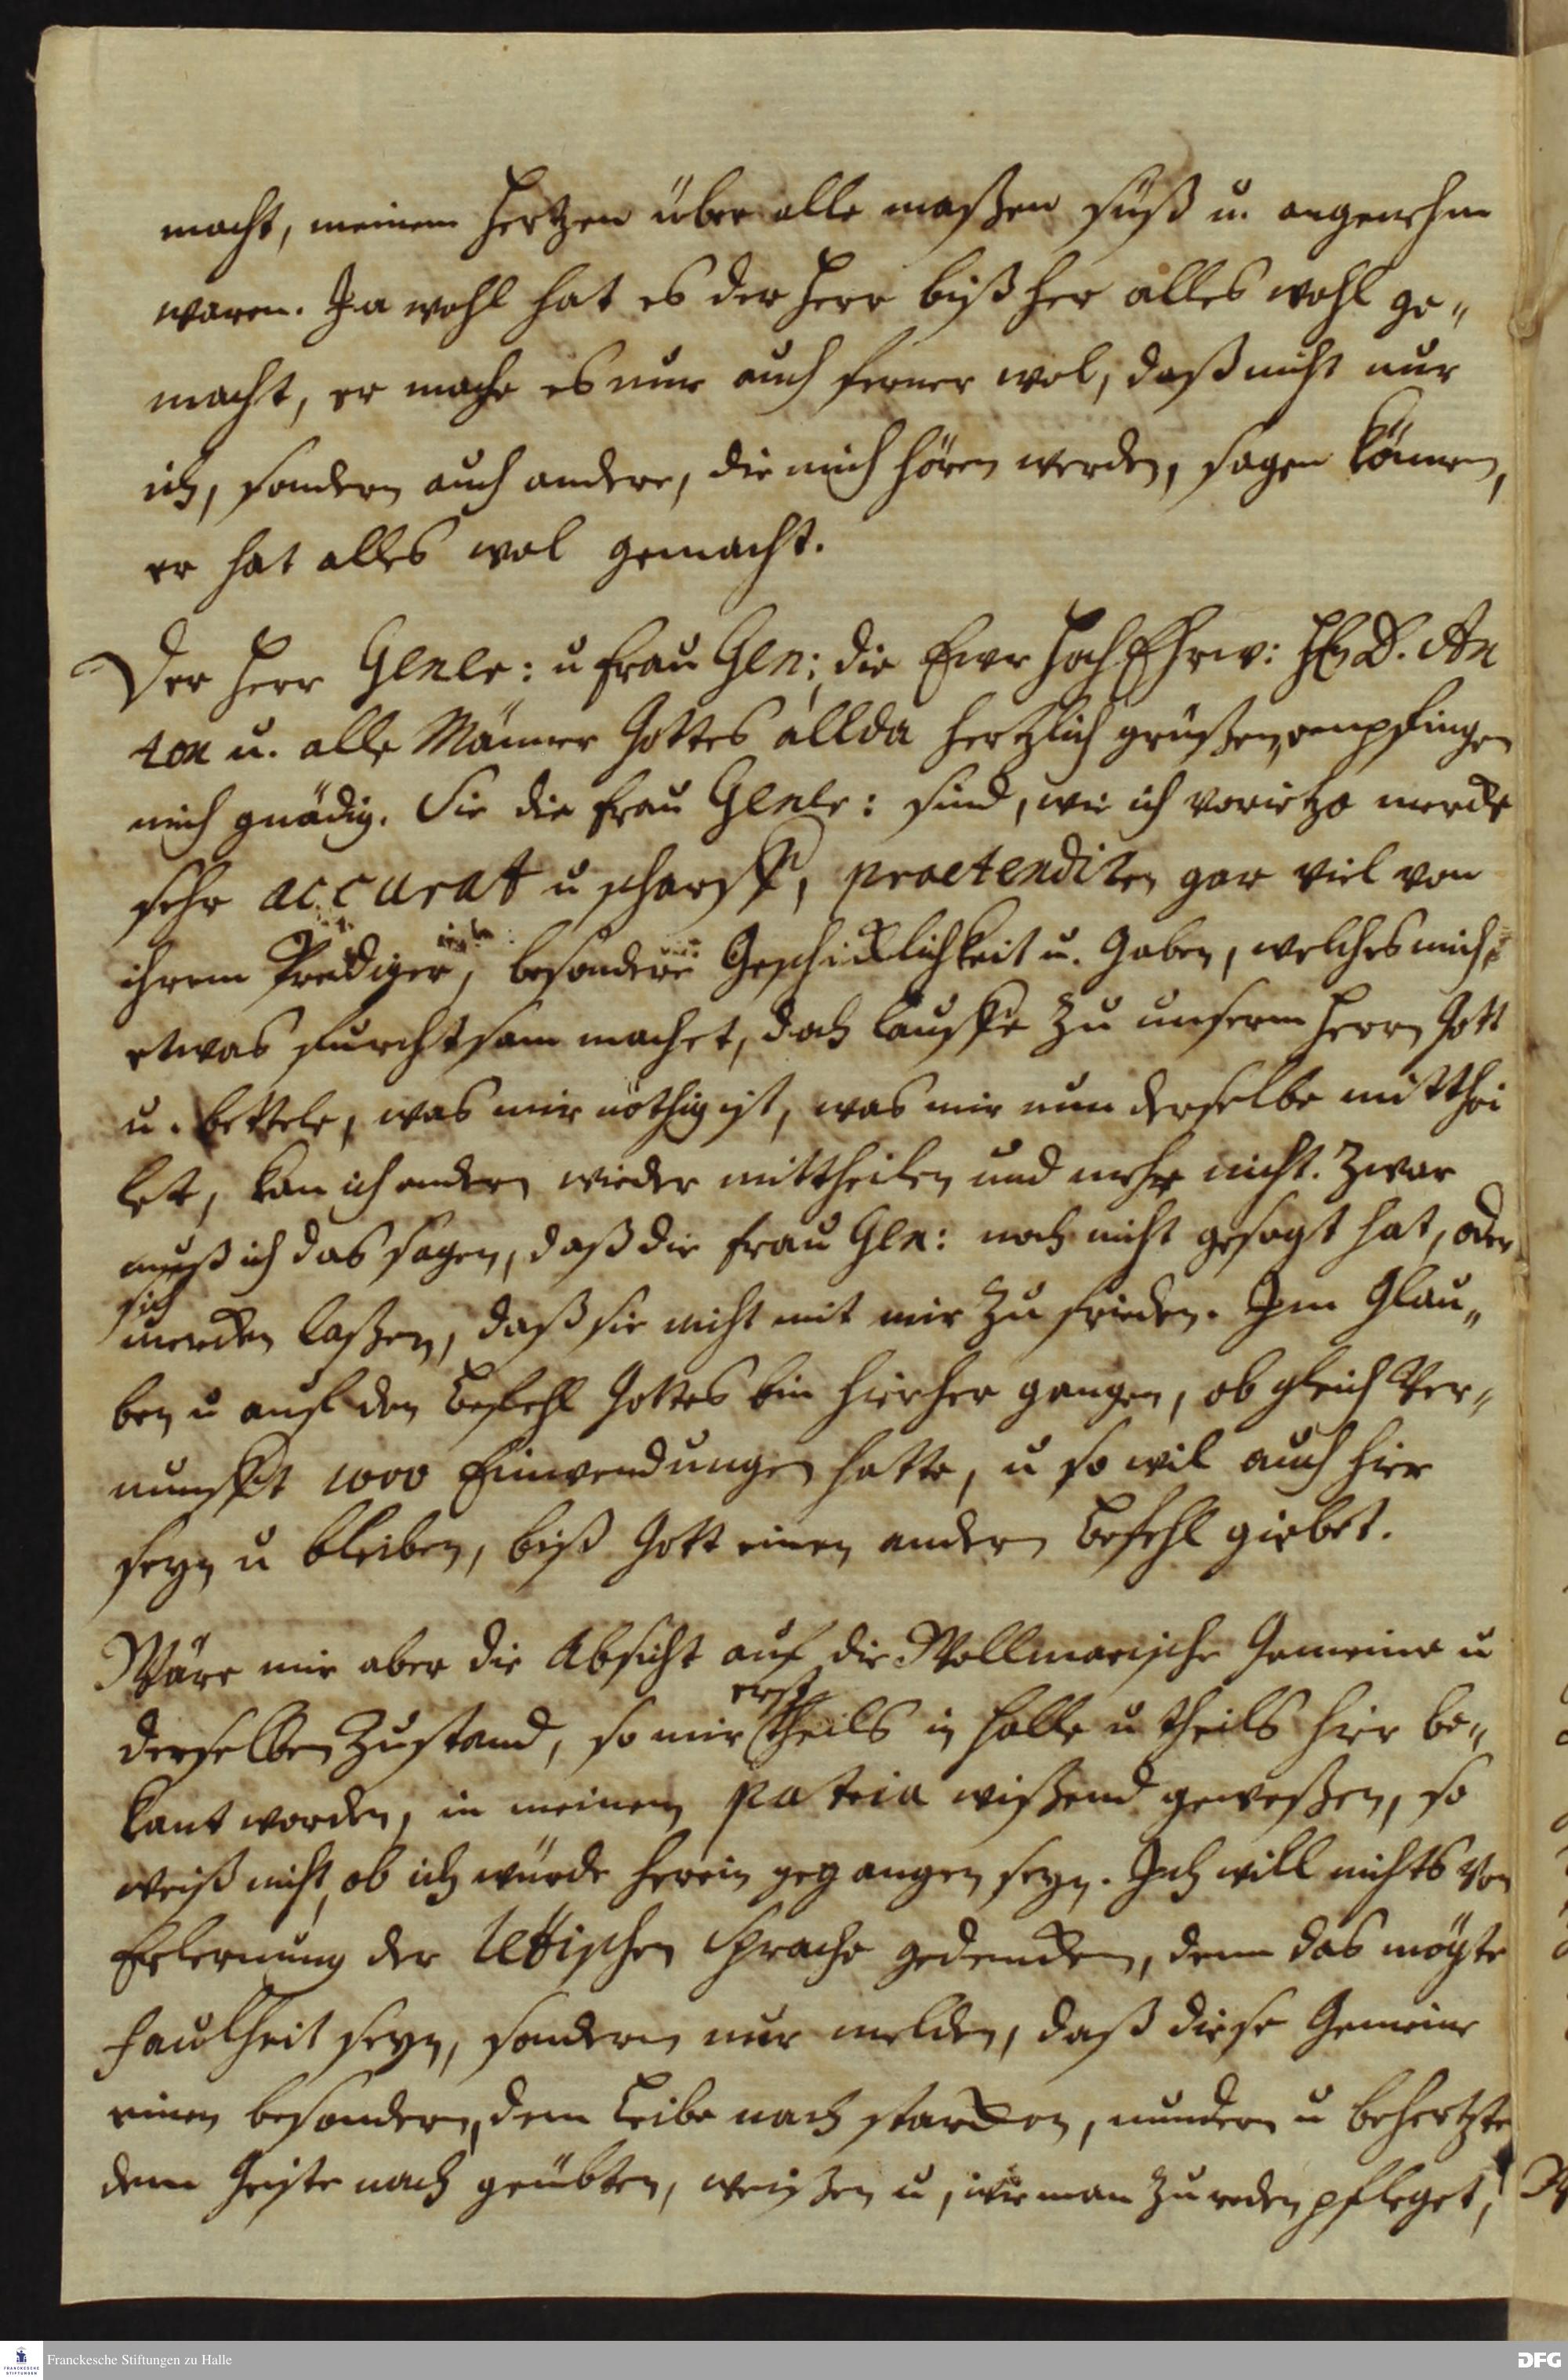 macht, meinem Hertzen über alle maßen süß u. angenehm
waren. Ja wohl hat es der Herr bißher alles wohl ge-
macht, er mache es nur auch ferner wol, daß nicht nur
ich, sondern auch andere, die mich hören werden, sagen können,
er hat alles wol gemacht.
Der Herr Genlr: u Frau Gen: die Ewr HochEhrw: HE D. An
ton u. alle Männer Gottes allda hertzlich grüßen, empfingen
mich gnädig. Sie die Frau Genlr: sind, wie ich vorietzo mercke
sehr accurat u scharff, praetendiren gar viel von
ihrem Prediger, besondere Geschicklichkeit u. Gaben, welches mich
etwas furchtsam machet, doch lauffe zu unserm Herrn Gott
u. bettele, was mir nöthig ist, was mir nun derselbe mitthei
let, kan ich andern wieder mittheilen und mehr nicht. Zwar
muß ich das sagen, daß die Frau Gen: noch nicht gesagt hat, oder
sich
mercken laßen, daß sie nicht mit mir zu frieden. Im Glau-
ben u auf den Befehl Gottes bin hierher gangen, ob gleich Ver-
nunfft 1000 Einwendungen hatte, u so wil auch hier
seyn u bleiben, biß Gott einen andern Befehl giebet.
Wäre mir aber die Absicht auf die Wollmarische Gemeine u
erst
derselben Zustand, so mir theils in Halle u theils hier be-
kant worden, in meinem patria wißend geweßen, so
weiß nicht, ob ich würde herein gegangen seyn. Ich will nichts von
Erlernung der lettischen Sprache gedencken, denn das mögte
Faulheit seyn, sondern nur melden, daß diese Gemeine
einen besondern, dem Leibe nach starcken, muntern u behertzten
dem Geiste nach geübten, weißen u, wie man zu reden pfleget,
Franckesche Stiftungen zu Halle
DFG